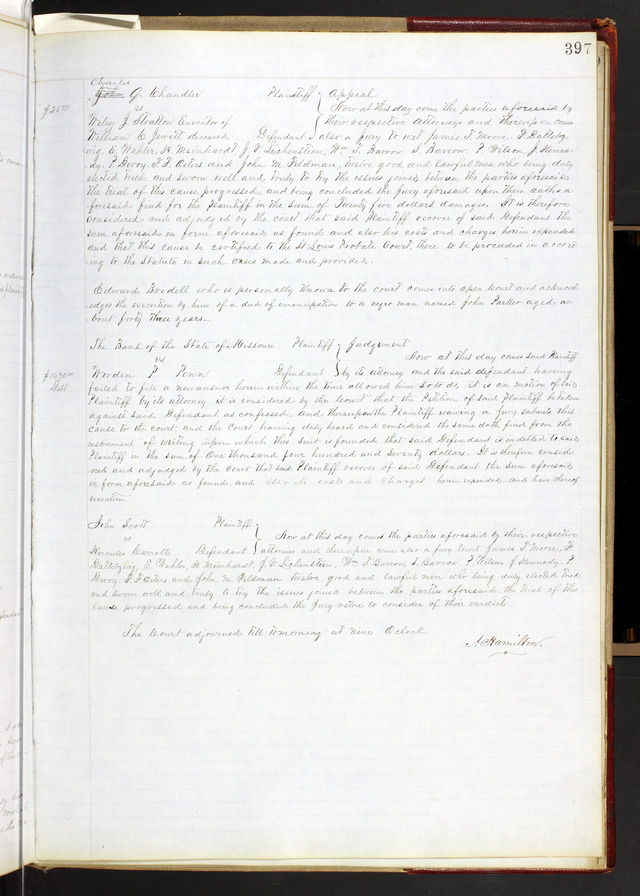 397
Charles
John G. Chandler Plaintiff } Appeal
$25.00 vs Now at this day come the parties aforesaid by
Wiley J Stratton Executor of their respective Attorneys and thereupon come
William C. Jewett deceased Defendant } also a Jury to wit James T. Moore. F Dattelz-
vig, C. Wahler, H Meinhardt, J. V. Leichenstein, Wm T. Barrow. S Barrow. P Wilson. J. Kenne-
dy. P Devoy. F. F. Peters and John M. Feldman, twelve good and lawful men who being duly
elected tried and sworn well and truly to try the issues joined between the parties aforesaid
the trial of this cause progressed, and being concluded the jury aforesaid upon their oaths a-
foresaid find for the Plaintiff in the sum of Twenty five dollars damages. It is therefore
considered and adjudged by the court that said Plaintiff recover of said Defendant the
sum aforesaid in form aforesaid as found and also his costs and charges herein expended
and that this cause be certified to the St Louis Probate Court, there to be proceeded in accord-
ing to the Statute in such cases made and provided.
Edward Bredell who is personally known to the court comes into open Court and acknowl-
edges the execution by him of a deed of emancipation to a negro man named John Parker aged a-
bout forty three years.
The Bank of the State of Missouri Plaintiff } Judgement
vs Now at this day comes said Plaintiff
$1470.00 Worden P Penn Defendant } by its attorney and the said defendant having
Debt failed to file a new answer herein within the time allowed him so to do, it is on motion of said
Plaintiff by its attorney it is considered by the Court that the Petition of said Plaintiff be taken
against said Defendant as confessed, and thereupon the Plaintiff waiving a jury submits this
cause to the court and the Court having duly heard and considered the same doth find from the
instrument of writing upon which this suit is founded that said Defendant is indebted to said
Plaintiff in the sum of One thousand four hundred and seventy dollars. It is therefore consid-
ered and adjudged by the Court that said Plaintiff recover of said Defendant the sum aforesaid
in form aforesaid as found, and also its costs and charges herein expended and have thereof
execution
John Scott Plaintiff }
vs Now at this day comes the parties aforesaid by their respective
Hercules Carroll Defendant } attornies and thereupon come also a jury to wit James T Moore, F
Dattelzvig, C. Wahler, H Meinhardt, J. V. Leichenstein, Wm T Barrow, S. Barrow. P Wilson J Kennedy. P
Devoy. F. F. Peters and John M. Feldman twelve good and lawful men who being duly elected tried
and sworn well and truly to try the issues joined between the parties aforesaid. the trial of this
cause progressed and being concluded the Jury retire to consider of their verdict.
The Court adjourned till tomorrow at nine Oclock
A. Hamilton.